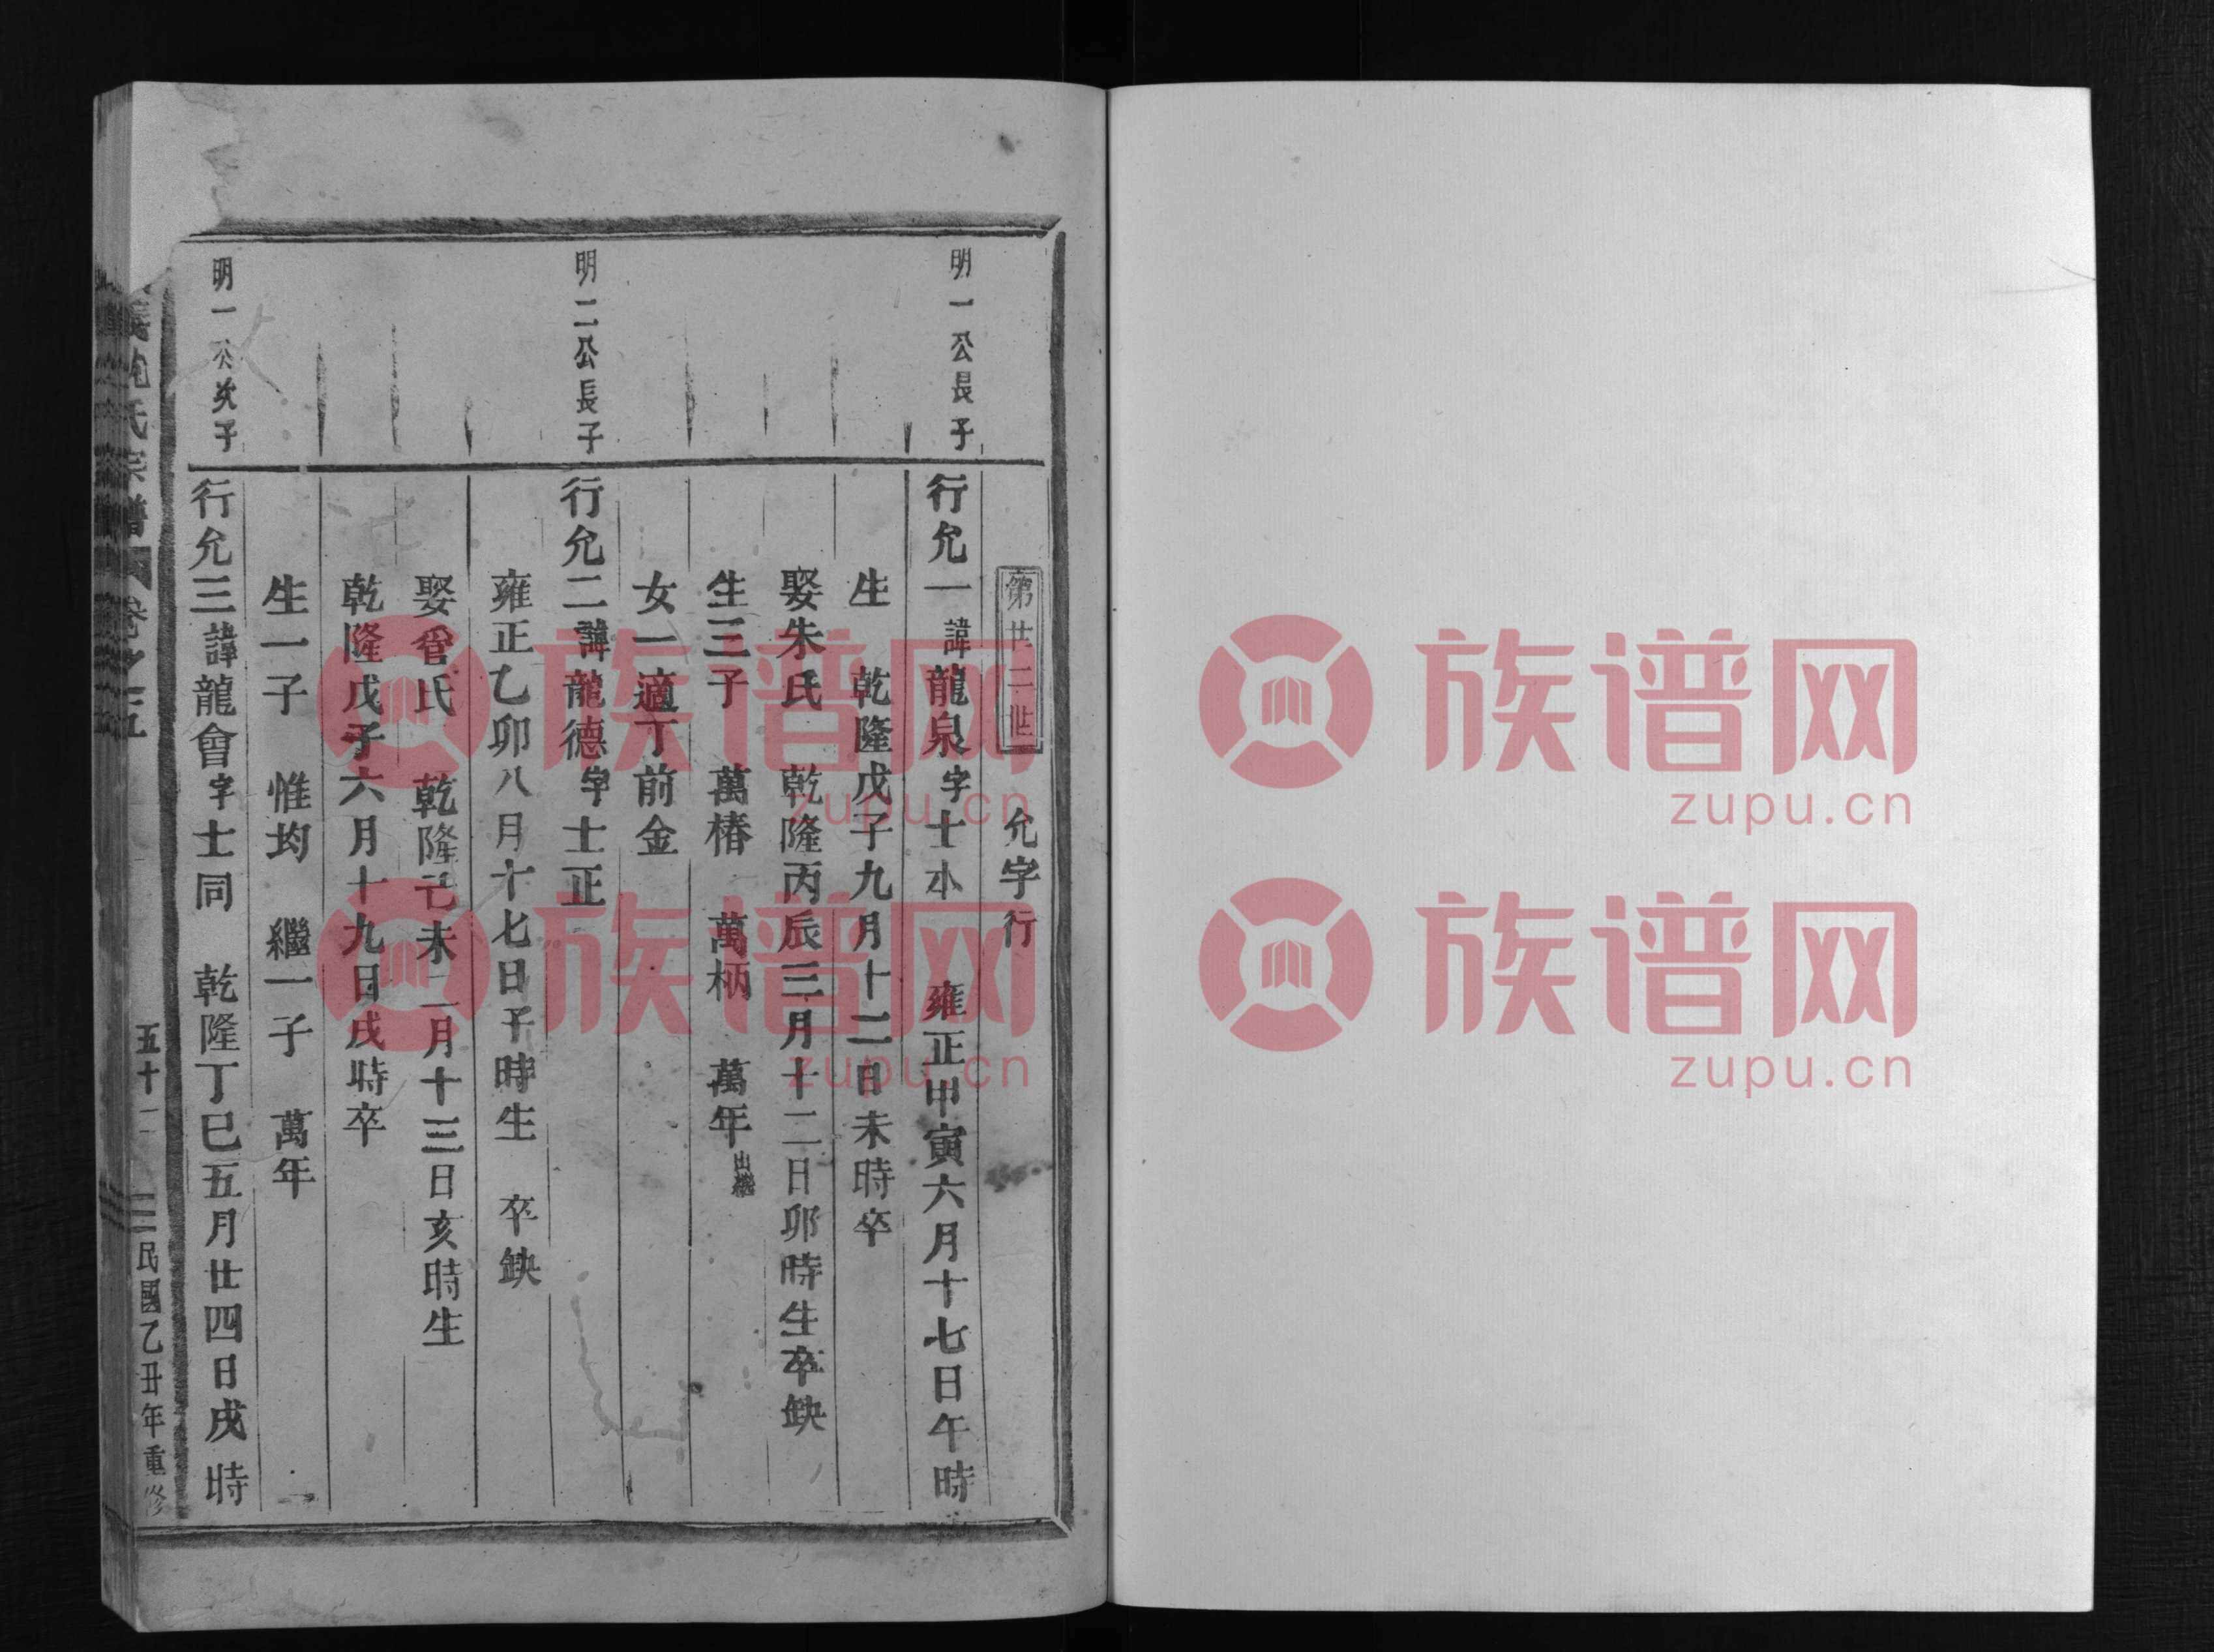 第廿二世 允字行
明一公長子
行允一諱龍泉字士本 雍正甲寅六月十七日午時
生 乾隆戊子九月十二日未時卒
娶朱氏 乾隆丙辰三月十二日卯時生卒缺
生三子 萬椿 萬柄 萬年出繼
女一適丁前金
明二公長子
行允二諱龍德字士正
雍正乙卯八月十七日子時生 卒缺
娶管氏 乾隆己未二月十三日亥時生
乾隆戊子六月十九日戌時卒
生一子 惟均 繼一子 萬年
明一公次子
行允三諱龍會字士同 乾隆丁巳五月廿四日戌時
氏宗譜 卷之五 五十二 民國乙丑年重修
族谱网
zupu.cn
族谱网
zupu.cn
族谱网
zupu.cn
族谱网
zupu.cn